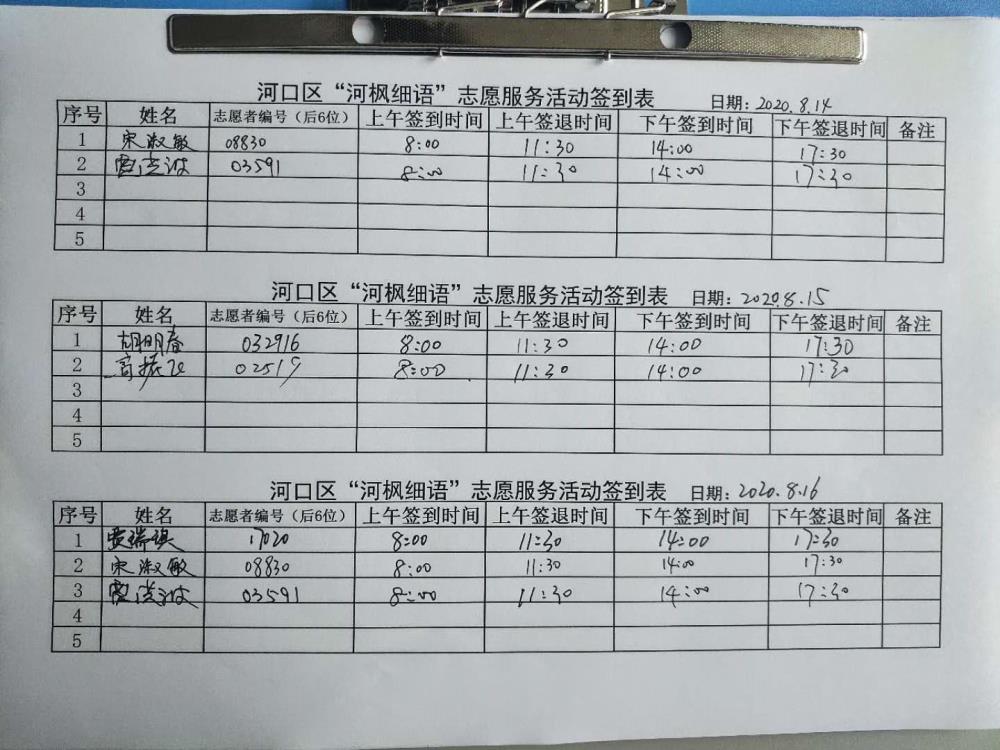 河口区“河枫细语”志愿服务活动签到表 日期：2020.8.14
序号 姓名 志愿者编号（后6位） 上午签到时间 上午签退时间 下午签到时间 下午签退时间 备注
1 宋淑敏 08830 8:00 11:30 14:00 17:30
2 03591 8:00 11:30 14:00 17:30
3
4
5
河口区“河枫细语”志愿服务活动签到表 日期：2020.8.15
序号 姓名 志愿者编号（后6位） 上午签到时间 上午签退时间 下午签到时间 下午签退时间 备注
1 胡明春 032916 8:00 11:30 14:00 17:30
2 02519 8:00 11:30 14:00 17:30
3
4
5
河口区“河枫细语”志愿服务活动签到表 日期：2020.8.16
序号 姓名 志愿者编号（后6位） 上午签到时间 上午签退时间 下午签到时间 下午签退时间 备注
1 17020 8:00 11:30 14:00 17:30
2 宋淑敏 08830 8:00 11:30 14:00 17:30
3 03591 8:00 11:30 14:00 17:30
4
5